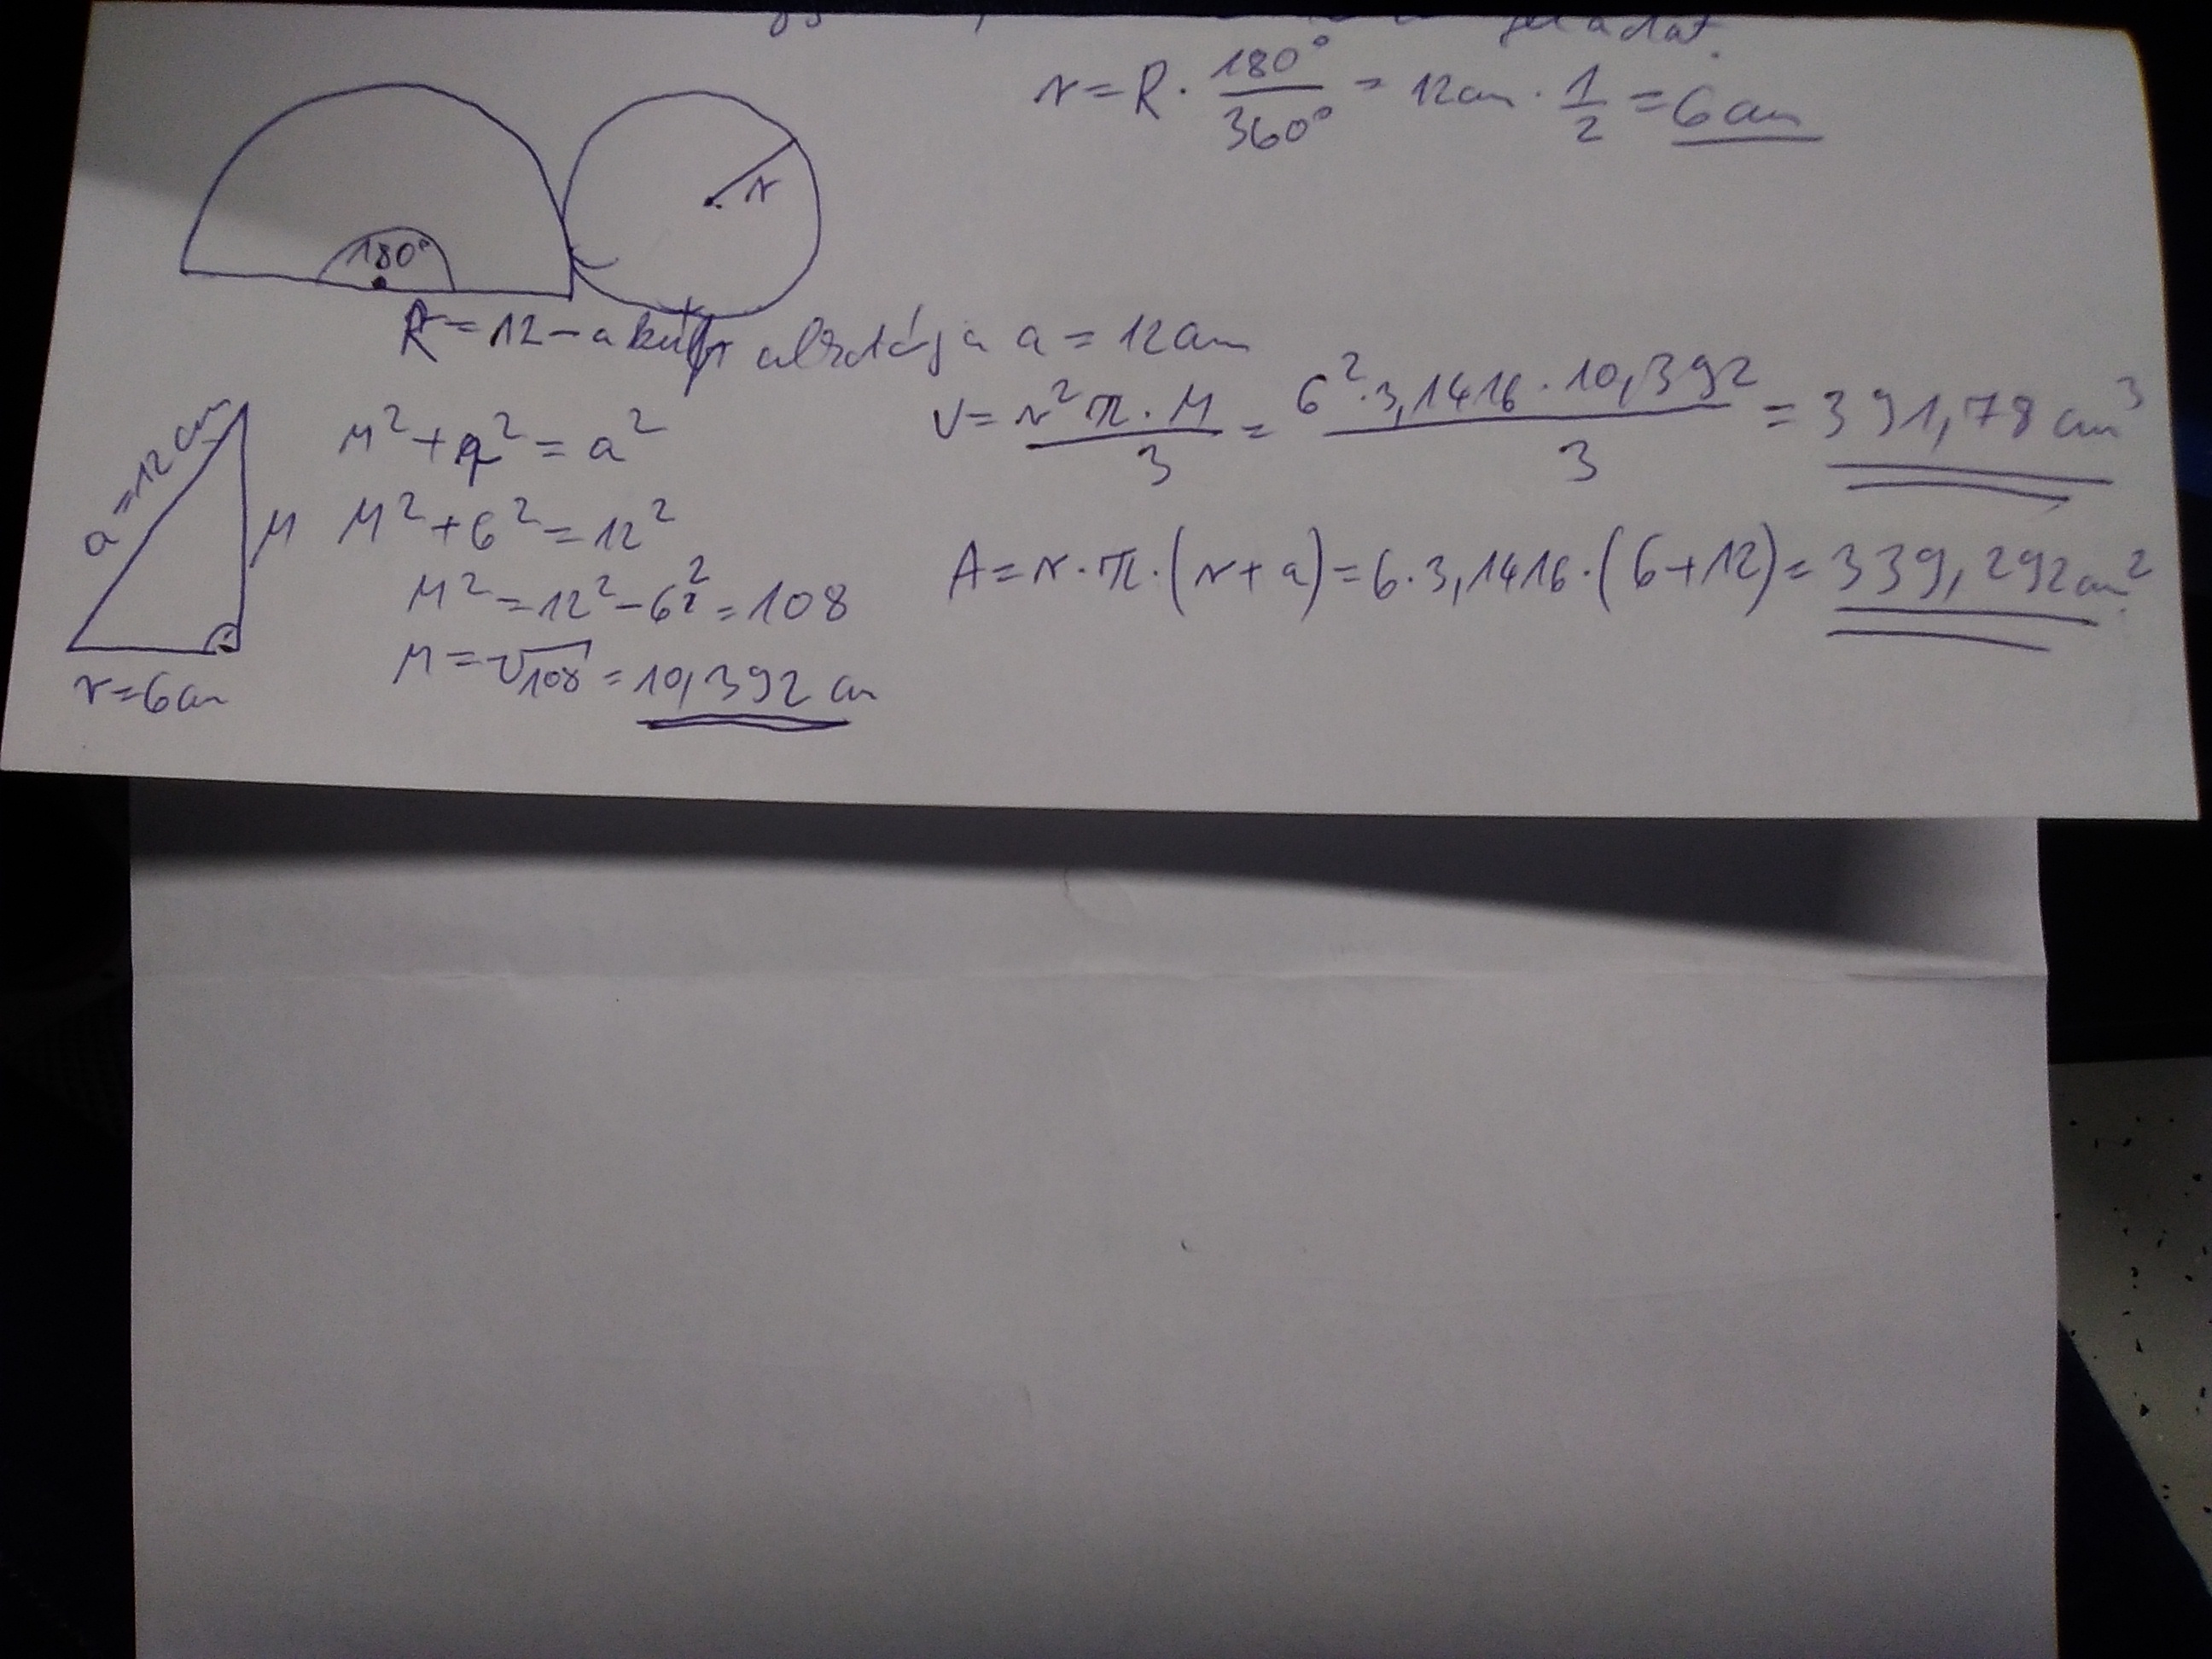 feladat.
r = R · 180°/360° = 12cm · 1/2 = 6cm
r
180°
R = 12 – a kúp alkotója a = 12cm
a = 12cm
M
r = 6cm
M² + r² = a²
M² + 6² = 12²
M² = 12² – 6² = 108
M = √108 = 10,392 cm
V = r²π · M/3 = 6² · 3,1416 · 10,392/3 = 391,78 cm³
A = r · π · (r + a) = 6 · 3,1416 · (6 + 12) = 339,292 cm²